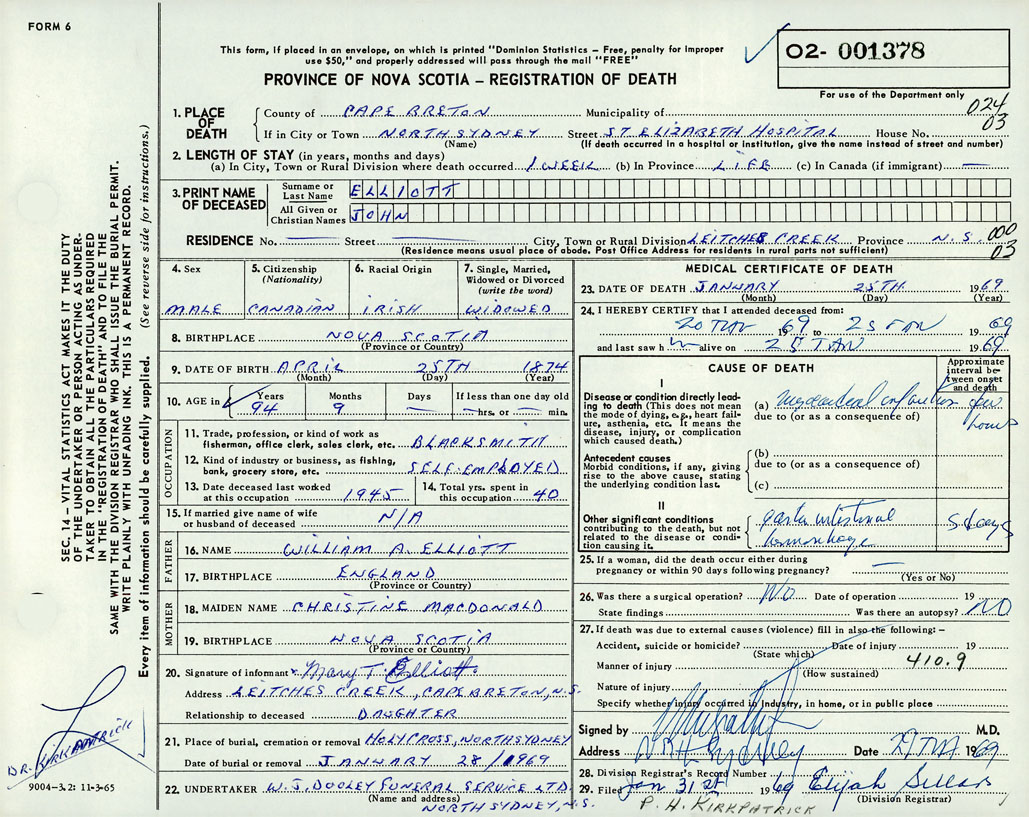 FORM 6
This form, if placed in an envelope, on which is printed "Dominion Statistics – Free, penalty for improper
use $50," and properly addressed will pass through the mail "FREE"
PROVINCE OF NOVA SCOTIA – REGISTRATION OF DEATH
O2- 001378
For use of the Department only
024
03
1. PLACE OF DEATH
County of CAPE BRETON Municipality of
If in City or Town NORTH SYDNEY Street ST ELIZABETH HOSPITAL House No.
(Name) (If death occurred in a hospital or institution, give the name instead of street and number)
2. LENGTH OF STAY (in years, months and days)
(a) In City, Town or Rural Division where death occurred 1 WEEK (b) In Province LIFE (c) In Canada (if immigrant) —
3. PRINT NAME OF DECEASED
Surname or Last Name ELLIOTT
All Given or Christian Names JOHN
RESIDENCE No. — Street — City, Town or Rural Division LEITCHES CREEK Province N.S.
000
03
(Residence means usual place of abode. Post Office Address for residents in rural parts not sufficient)
4. Sex
MALE
5. Citizenship
(Nationality)
CANADIAN
6. Racial Origin
IRISH
7. Single, Married,
Widowed or Divorced
(write the word)
WIDOWED
8. BIRTHPLACE NOVA SCOTIA
(Province or Country)
9. DATE OF BIRTH APRIL 25TH 1874
(Month) (Day) (Year)
10. AGE in Years 94 Months 9 Days — If less than one day old — hrs. or — min.
OCCUPATION
11. Trade, profession, or kind of work as
fisherman, office clerk, sales clerk, etc. BLACKSMITH
12. Kind of industry or business, as fishing,
bank, grocery store, etc. SELF-EMPLOYED
13. Date deceased last worked
at this occupation 1945
14. Total yrs. spent in
this occupation 40
15. If married give name of wife
or husband of deceased N/A
FATHER
16. NAME WILLIAM A. ELLIOTT
17. BIRTHPLACE ENGLAND
(Province or Country)
MOTHER
18. MAIDEN NAME CHRISTINE MACDONALD
19. BIRTHPLACE NOVA SCOTIA
(Province or Country)
20. Signature of informant x Mary T. Elliott
Address LEITCHES CREEK, CAPE BRETON, N.S.
Relationship to deceased DAUGHTER
21. Place of burial, cremation or removal HOLY CROSS, NORTH SYDNEY
Date of burial or removal JANUARY 28/1969
22. UNDERTAKER W. J. DOOLEY FUNERAL SERVICE LTD.
(Name and address)
NORTH SYDNEY, N.S.
MEDICAL CERTIFICATE OF DEATH
23. DATE OF DEATH JANUARY 25TH 1969
(Month) (Day) (Year)
24. I HEREBY CERTIFY that I attended deceased from:
20 JAN 1969 to 25 JAN 1969
and last saw him alive on 25 JAN 1969
CAUSE OF DEATH
Approximate
interval be-
tween onset
and death
I
Disease or condition directly lead-
ing to death (This does not mean
the mode of dying, e.g., heart fail-
ure, asthenia, etc. It means the
disease, injury, or complication
which caused death.)
(a) Myocardial infarction few hours
due to (or as a consequence of)
Antecedent causes
Morbid conditions, if any, giving
rise to the above cause, stating
the underlying condition last.
(b)
due to (or as a consequence of)
(c)
II
Other significant conditions
contributing to the death, but not
related to the disease or condi-
tion causing it.
gastro intestinal
hemorrhage
5 days
25. If a woman, did the death occur either during
pregnancy or within 90 days following pregnancy? —
(Yes or No)
26. Was there a surgical operation? NO Date of operation 19
State findings Was there an autopsy? NO
27. If death was due to external causes (violence) fill in also the following: –
Accident, suicide or homicide? Date of injury 19
(State which)
Manner of injury 410.9
(How sustained)
Nature of injury
Specify whether injury occurred in industry, in home, or in public place
Signed by M.D.
Address Date 29 JAN 1969
28. Division Registrar's Record Number
29. Filed Jan 31st 1969 Elijah
(Division Registrar)
P. H. KIRKPATRICK
SEC. 14 – VITAL STATISTICS ACT MAKES IT THE DUTY
OF THE UNDERTAKER OR PERSON ACTING AS UNDER-
TAKER TO OBTAIN ALL THE PARTICULARS REQUIRED
IN THE "REGISTRATION OF DEATH" AND TO FILE THE
SAME WITH THE DIVISION REGISTRAR WHO SHALL ISSUE THE BURIAL PERMIT.
WRITE PLAINLY WITH UNFADING INK. THIS IS A PERMANENT RECORD.
Every item of information should be carefully supplied. (See reverse side for instructions.)
DR. KIRKPATRICK
9004–3.2: 11-3-65